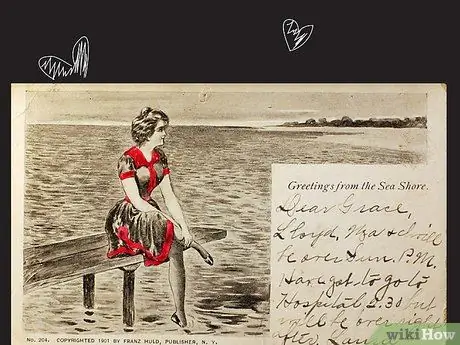 Greetings from the Sea Shore.
Dear Grace,
Lloyd,
be over Sun. P.M.
Have got to go to
Hospital 2.30 but
will be over right
after,
No. 204. COPYRIGHTED 1901 BY FRANZ HULD, PUBLISHER, N. Y.
wikiHow